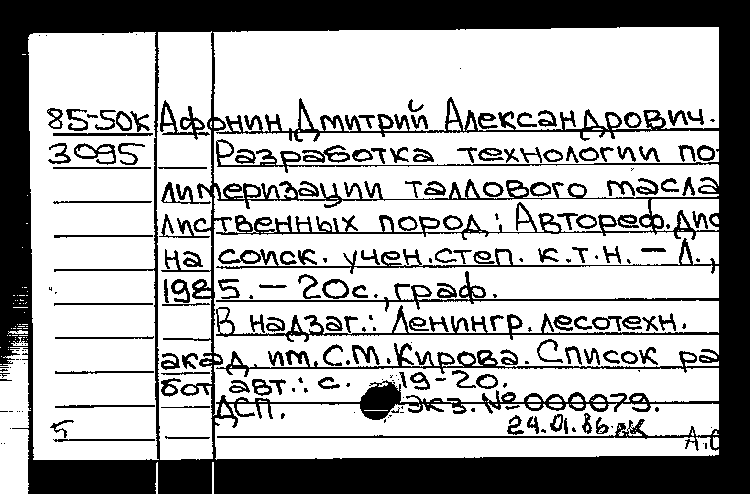 85-50к Афонин, Дмитрий Александрович.
3095 Разработка технологии по-
лимеризации таллового масла
лиственных пород: Автореф. дис
на соиск. учен. степ. к.т.н. — Л.,
1985. — 20с., граф.
В надзаг.: Ленингр. лесотехн.
акад. им. С.М. Кирова. Список ра
бот авт.: с. 19-20.
ДСП. экз. № 000079.
24.01.86 вк
5 А.С